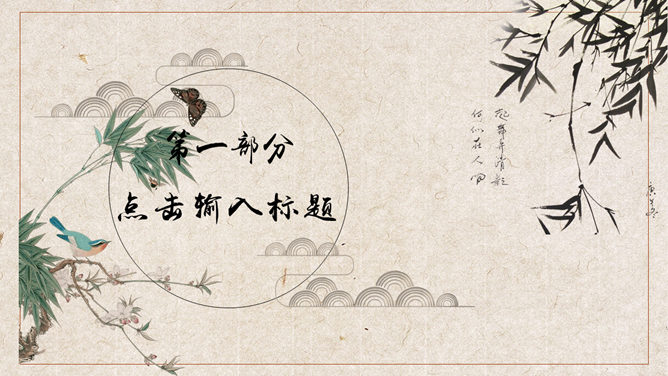 第一部分
点击输入标题
起舞弄清影
何似在人间